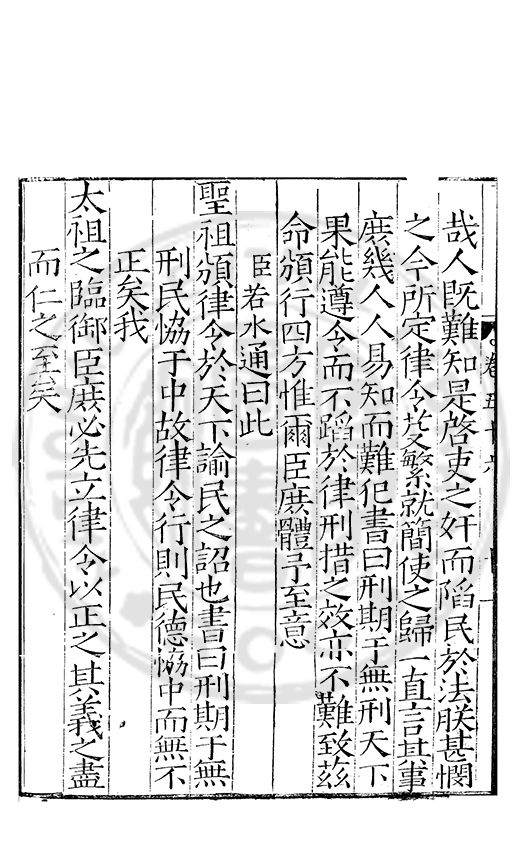 哉人既難知是啓吏之奸而陷民於法朕甚憫
之今所定律令芟繁就簡使之歸一直言其事
庶幾人人易知而難犯書曰刑期于無刑天下
果能遵令而不蹈於律刑措之效亦不難致茲
命頒行四方惟爾臣庶體予至意
臣若水通曰此
聖祖頒律令於天下諭民之詔也書曰刑期于無
刑民恊于中故律令行則民德恊中而無不
正矣我
太祖之臨御臣庶必先立律令以正之其義之盡
而仁之至矣